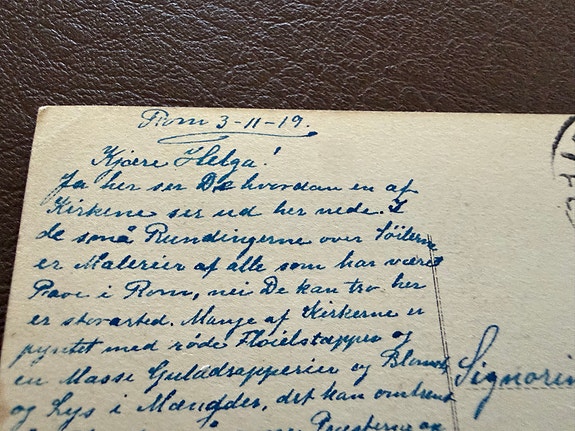 Rom 3-11-19.
Kjære Helga!
Ja her ser De hvordan en af
Kirkene ser ud her nede. I
de små Rundingerne over Söilerne
er Malerier af alle som har været
Pave i Rom, nei De kan tro her
er storarted. Mange af Kirkerne er
pyntet med røde Fløielstæpper og
en Masse Gulddrapperier og Blomster
og Lys i Mængder, det kan omtrent
Præsterne og
Signorin